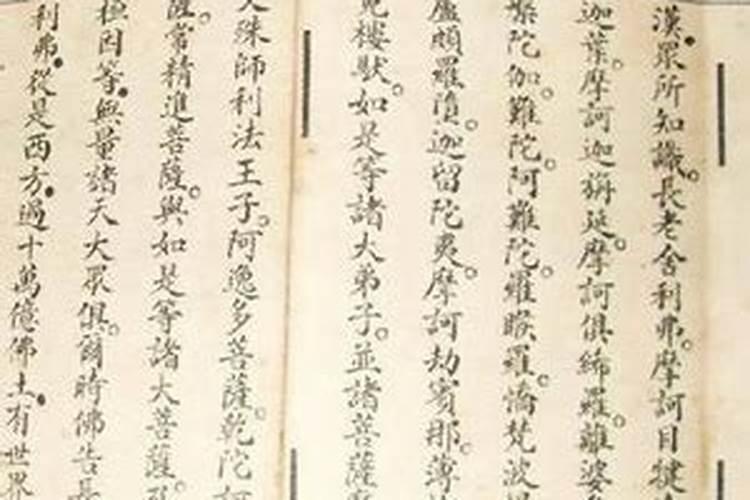 漢眾所知識長老舍利弗摩訶目犍
迦葉摩訶迦旃延摩訶俱絺羅離婆
槃陀伽難陀阿難陀羅睺羅憍梵波
盧頗羅墮迦留陀夷摩訶劫賓那薄
樓馱如是等諸大弟子並諸菩薩
殊師利法王子阿逸多菩薩乾陀訶
薩常精進菩薩與如是等諸大菩薩
桓因等無量諸天大眾俱爾時佛告長
利弗從是西方過十萬億佛土有世界